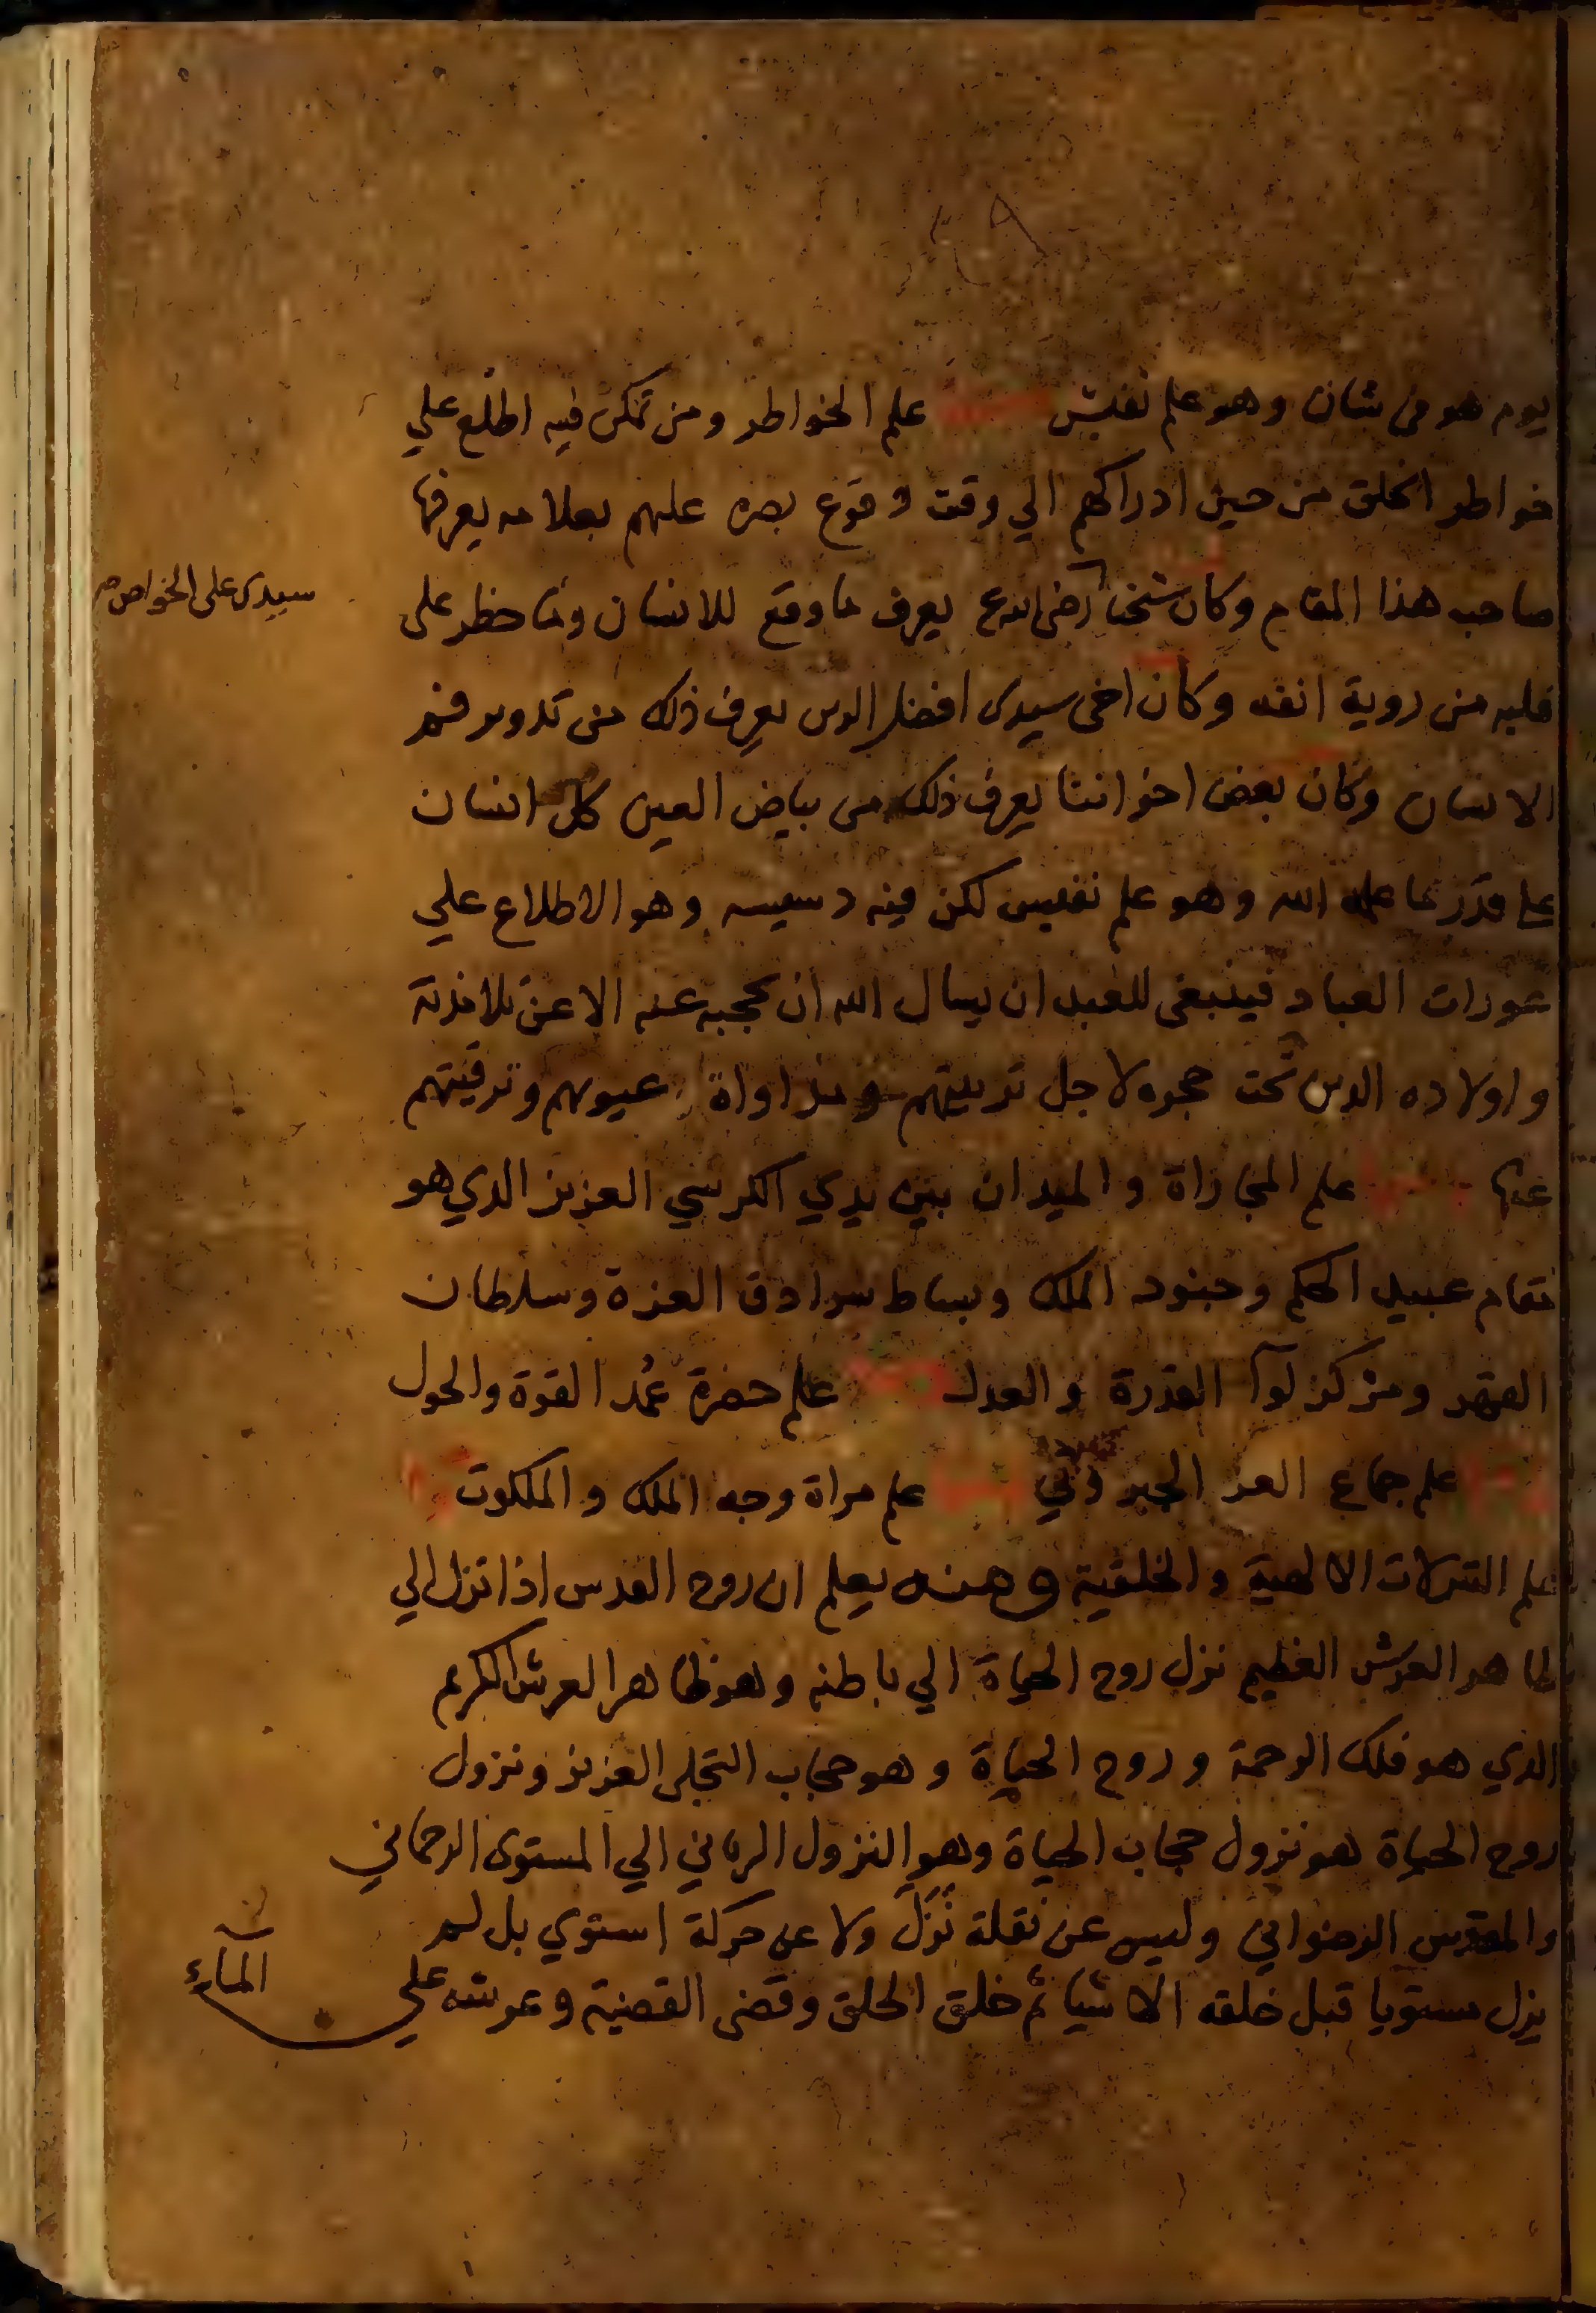 يوم هو في شان وهو علم نفيس علم الخواطر ومن تمكن فيه اطلع علي
خواطر الخلق من حين ادراكهم الي وقت وقوع بصره عليهم بعلامه يعرفها
صاحب هذا المقام وكان شيخنا رضي الله ع يعرف ما وقع للانسان وما خطر على
سيدي على الخواص
قلبه من روية انفه وكان اخي سيدي افضل الدين يعرف ذلك من تدوير فم
الانسان وكان بعض اخواننا يعرف ذلك من بياض العين كل انسان
على قدر ما علمه الله وهو علم نفيس لكن فيه دسيسه وهو الاطلاع علي
عورات العباد فينبغي للعبد ان يسال الله ان يحجبه عنه الا عن تلامذته
واولاده الذين تحت حجره لاجل تربيتهم ومداواة عيوبهم وترقيتهم
عنها علم المجاراة والميدان بين يدي الكرسي العزيز الذي هو
مقام عبيد الحكم وجنود الملك وبساط سرادق العزة وسلطان
القهر ومركز لوآ القدرة والعدل علم حضرة عُمد القوة والحول
علم جماع العز الجبروتي علم مراة وجه الملك والملكوت
علم التنزلات الالهية والخلقية ومنه يعلم ان روح القدس اذا نزل الي
ظاهر العرش العظيم نزل روح الحياة الي باطنه وهو ظاهر العرش الكريم
الذي هو فلك الرحمة وروح الحياة وهو حجاب التجلي العزيز ونزول
روح الحياة هو نزول حجاب الحياة وهو النزول الرباني الي المستوى الرحماني
والمقدس الرضواني وليس عن نقلة نَزَلَ ولا عن حركة استوي بل لم
يزل مستويا قبل خلقه الاشيا ثم خلق الخلق وقضى القضية وعرشه علي
المآء